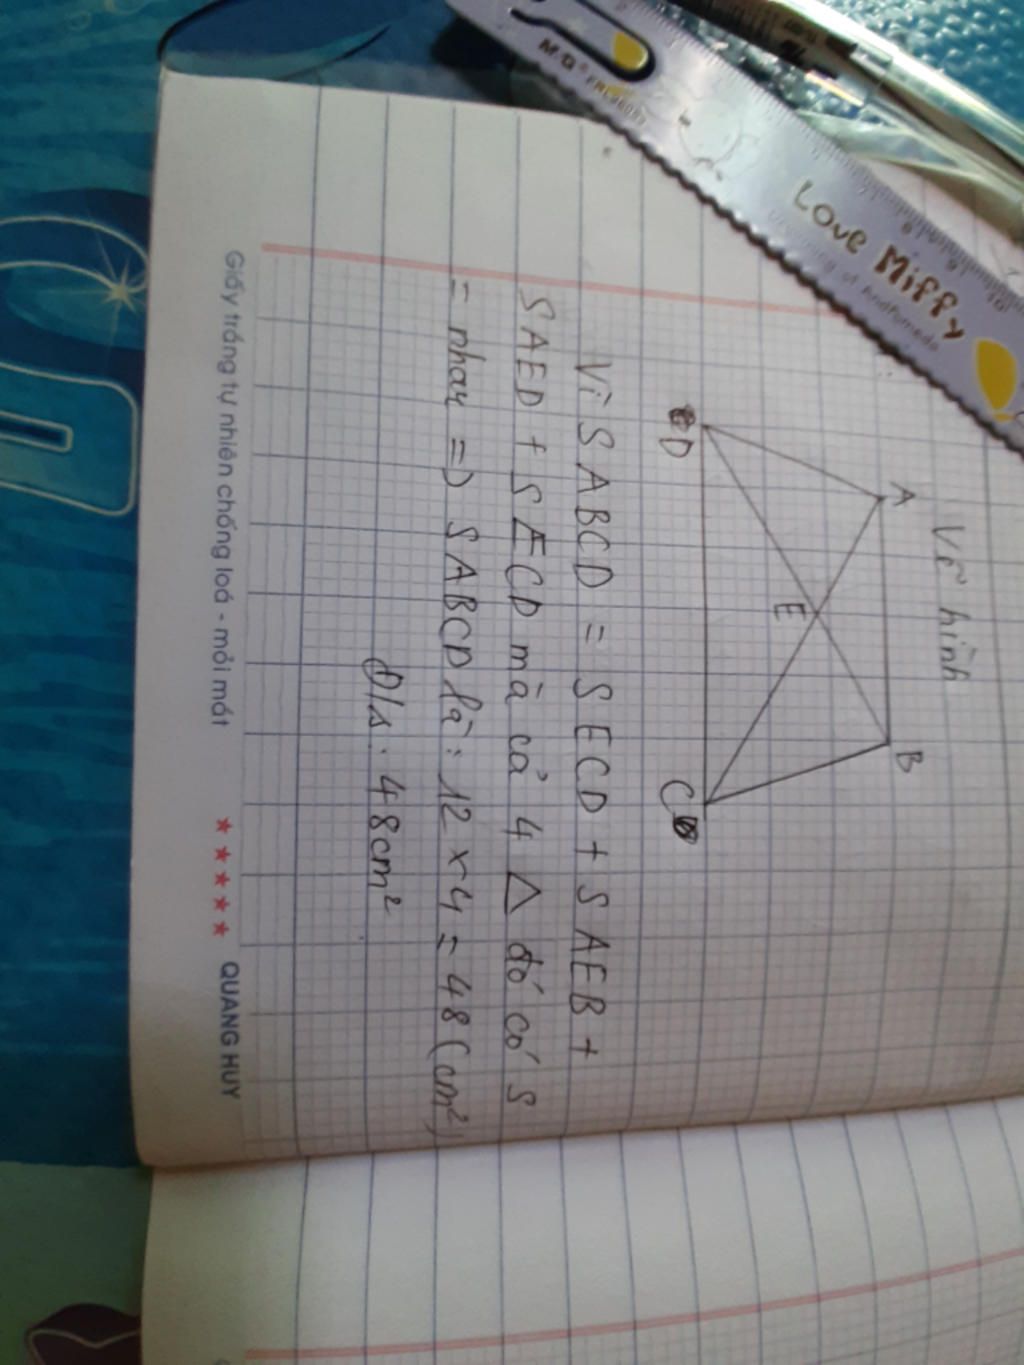 Vẽ hình
A
B
E
D
C
Vì SABCD = SECD + SAEB +
SAED + SECD mà cả 4 △ đó có S
= nhau => SABCD là: 12 × 4 = 48 (cm²)
Đ/s: 48cm²
Giấy trắng tự nhiên chống loá - mỏi mắt ★★★★★ QUANG HUY
M&G
Love Miffy